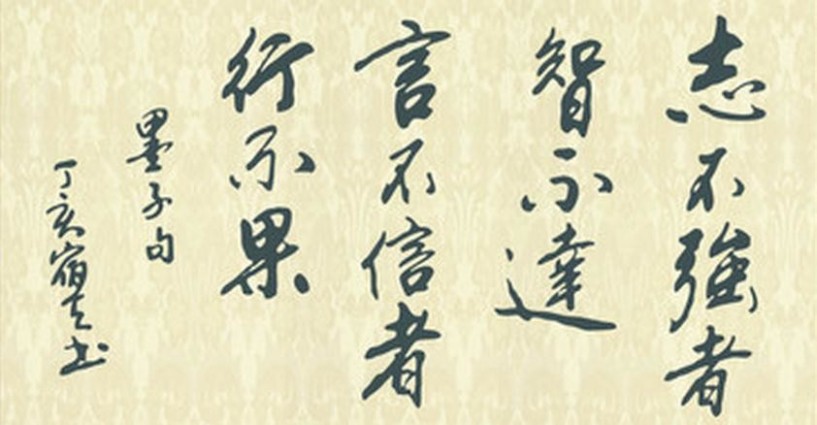 志不強者
智不達
言不信者
行不果
墨子句
丁亥宿